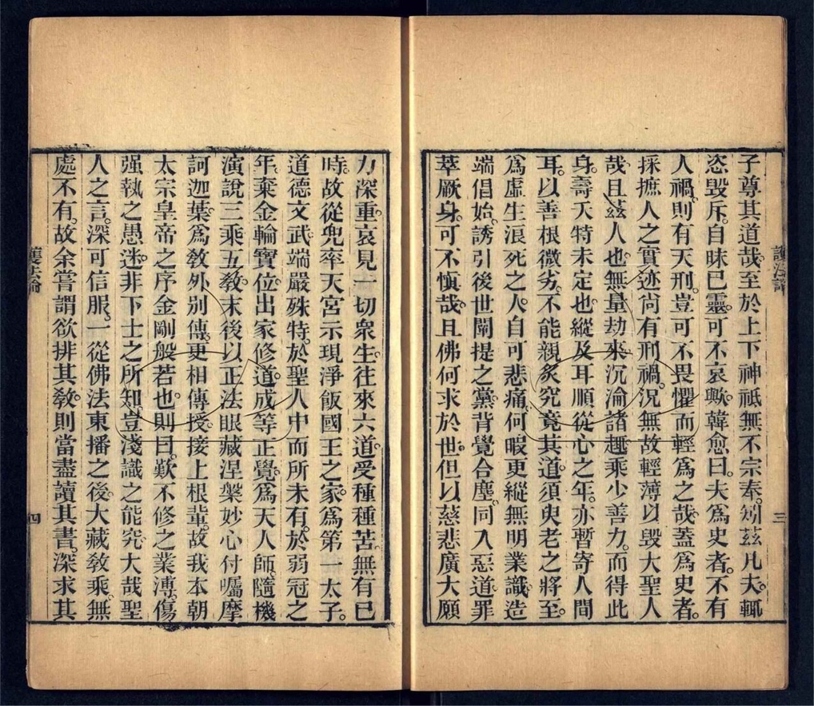 護法論
三
子尊其道哉。至於上下神祇無不宗奉。矧茲凡夫。輒
恣毀斥。自昧巳靈。可不哀歟。韓愈曰。夫爲史者。不有
人禍。則有天刑。豈可不畏懼而輕爲之哉。蓋爲史者。
採摭人之實迹。尚有刑禍。況無故輕薄以毀大聖人
哉。且茲人也。無量劫來。沉淪諸趣。乘少善力。而得此
身。壽夭特未定也。縱及耳順從心之年。亦暫寄人間
耳。以善根微劣。不能親炙究竟其道。須臾老之將至。
爲虛生浪死之人。自可悲痛。何暇更縱無明業識。造
端倡始。誘引後世闡提之黨。背覺合塵。同入惡道。罪
萃厥身。可不慎哉。且佛何求於世。但以慈悲廣大願
力深重。哀見一切衆生。往來六道。受種種苦。無有已
時。故從兜率天宮。示現淨飯國王之家。爲第一太子。
道德文武。端嚴殊特。於聖人中而所未有。於弱冠之
年。棄金輪寶位。出家修道。成等正覺。爲天人師。隨機
演說三乘五教。末後以正法眼藏。涅槃妙心。付囑摩
訶迦葉。爲教外別傳。更相傳授。接上根輩。故我本朝
太宗皇帝之序金剛般若也。則曰。歎不修之業溥。傷
强執之愚迷。非下士之所知。豈淺識之能究。大哉聖
人之言。深可信服。一從佛法東播之後。大藏教乘。無
處不有。故余嘗謂欲排其教。則當盡讀其書。深求其
護法論
四